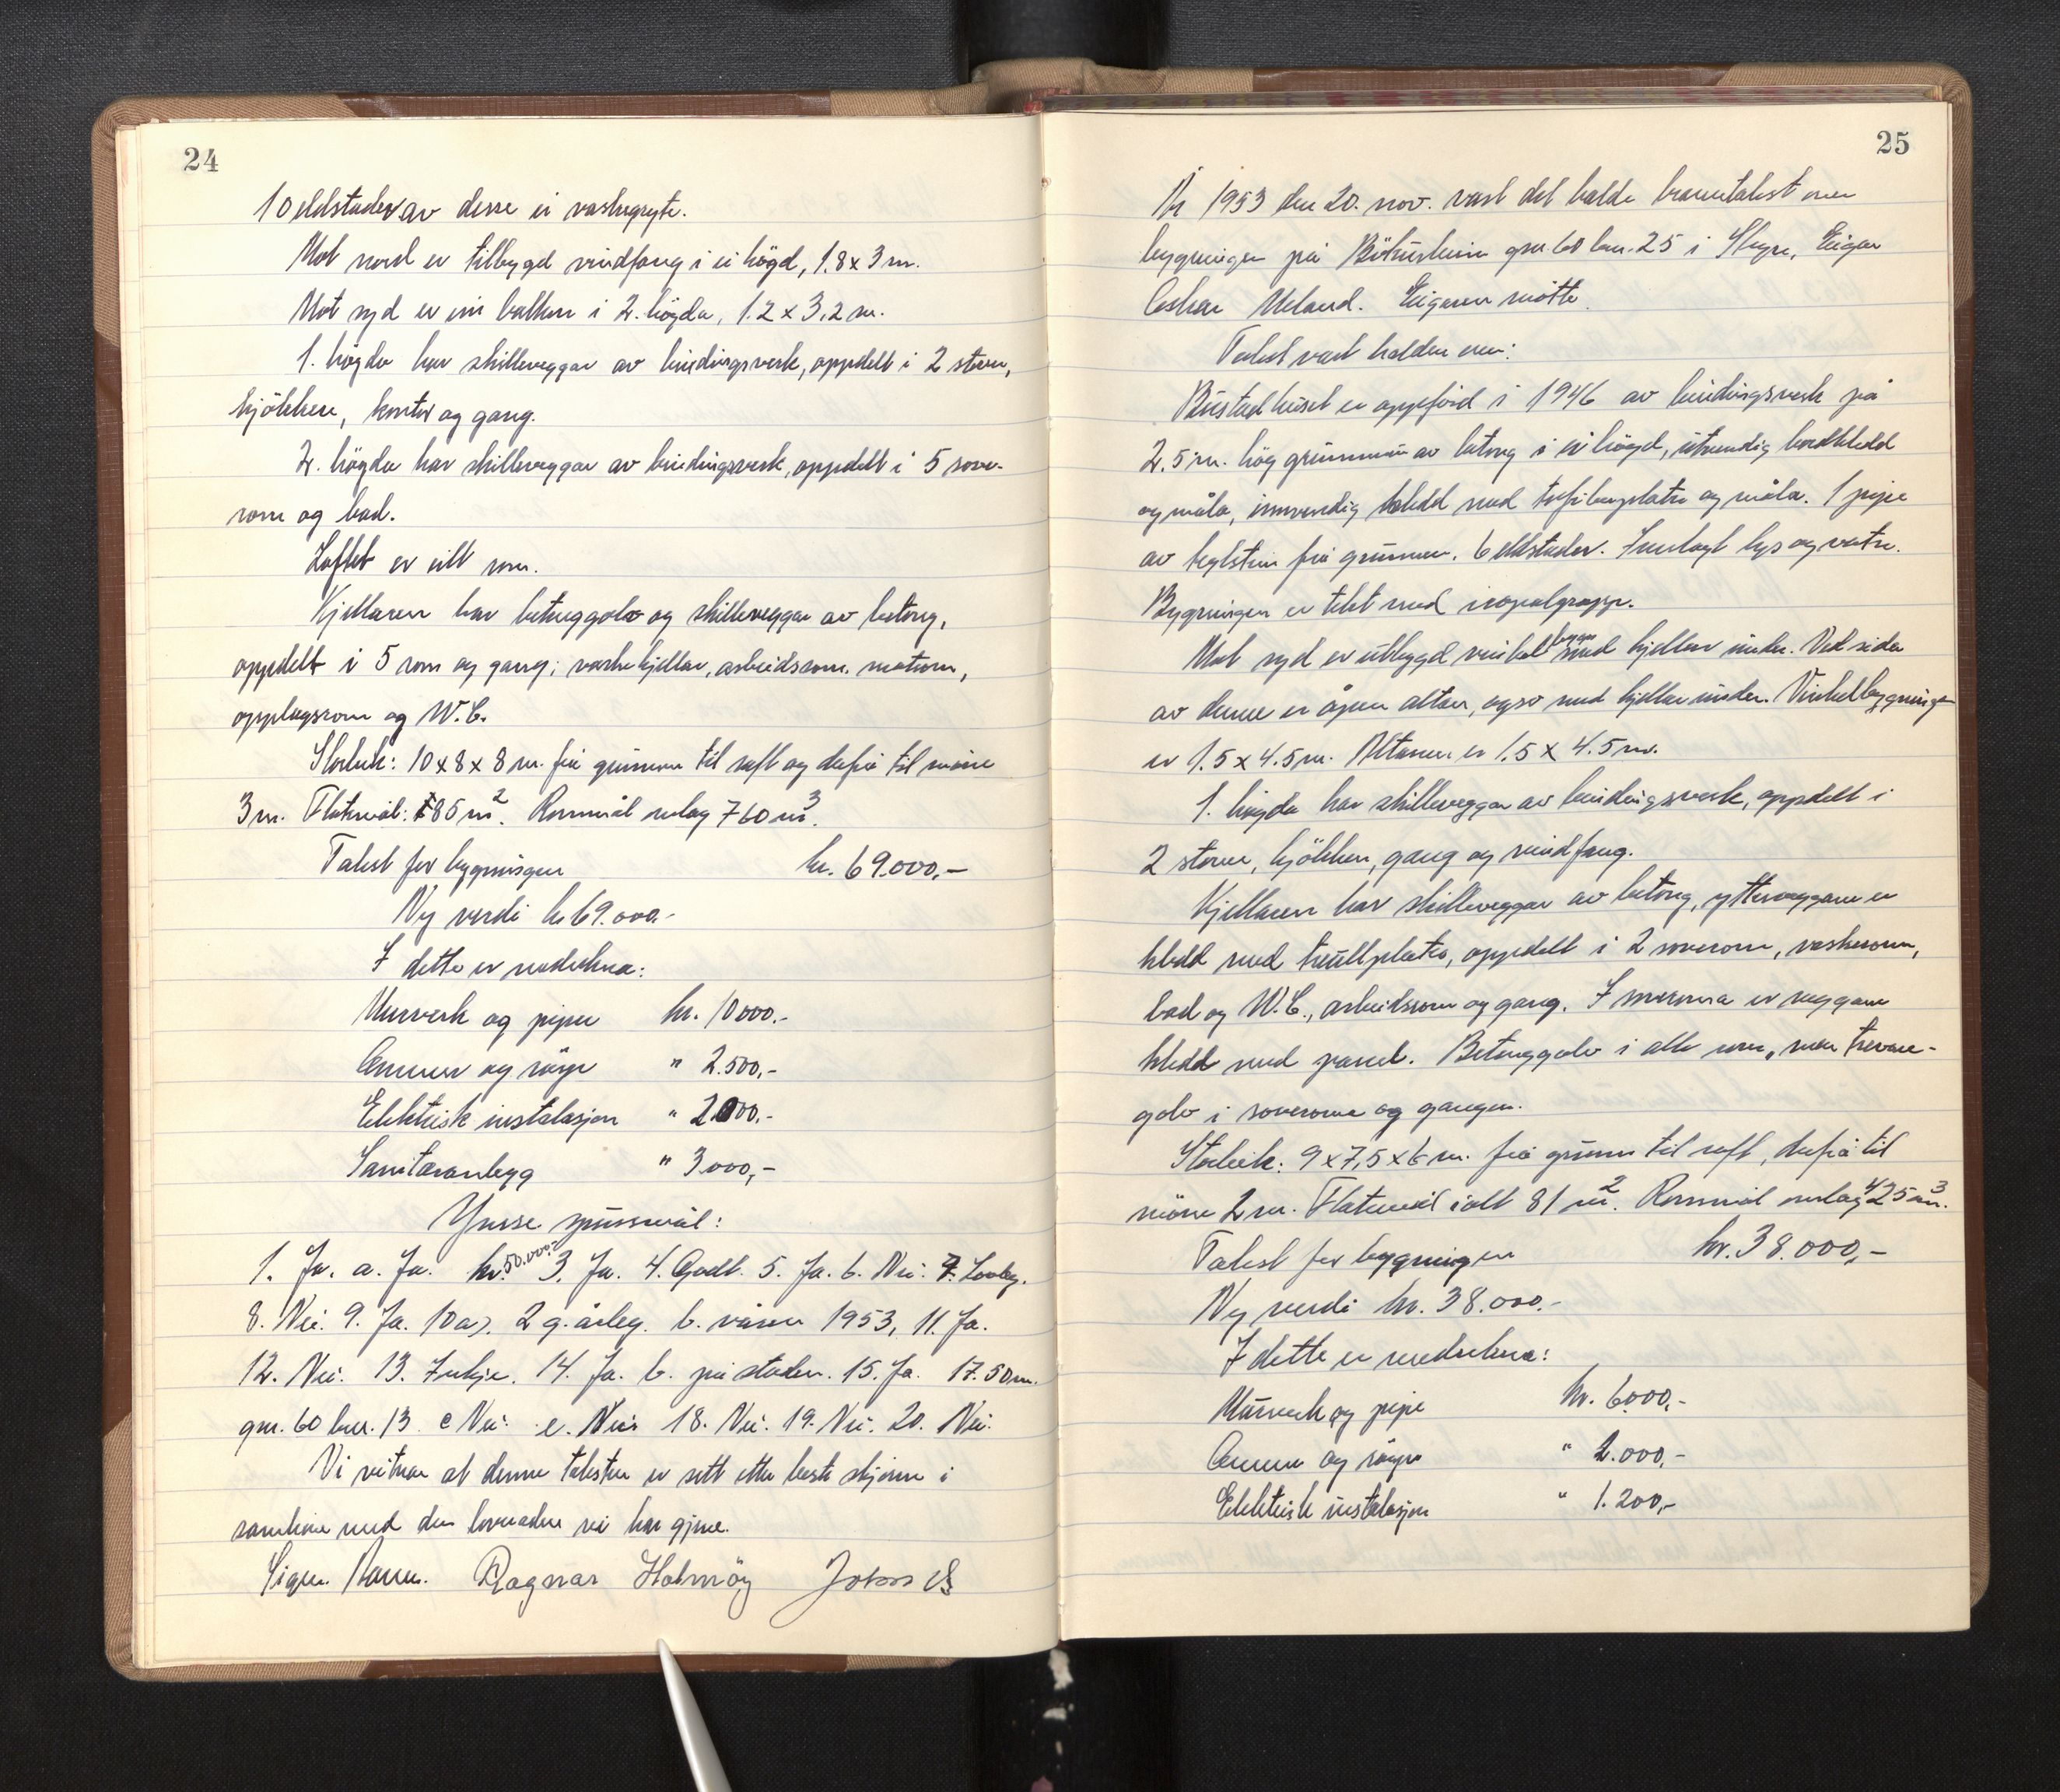 24
10 eldstader av desse ei vaskegryte.
Mot nord er tilbygd vindfang i ei högd, 1.8 x 3 m.
Mot syd er ein balkon i 2. högda, 1.2 x 3,2 m.
1. högda har skilleveggar av bindingsverk, oppdelt i 2 stover,
kjökken, kontor og gang.
2. högda har skilleveggar av bindingsverk, oppdelt i 5 sove-
rom og bad.
Loftet er eitt rom.
Kjellaren har betonggolv og skilleveggar av betong,
oppdelt i 5 rom og gang; vaskekjellar, arbeidsrom, matrom,
opplagsrom og W.C.
Storleik: 10 x 8 x 8 m. frå grunnen til raft og derfrå til möne
3 m. Flatemål: 85 m2. Rommål omlag 760 m3.
Takst for bygningen kr. 69.000,-
Ny verdi kr 69.000.-
I dette er medrekna:
Murverk og piper kr. 10000.-
Omnar og röyr " 2.500,-
Elektrisk instalasjon " 2000.-
Sanitæranlegg " 3000,-
Ymse spursmål:
1. Ja. a. Ja. kr. 50.000.- 3. Ja. 4. Godt. 5. Ja. 6. Nei. 7. Lovleg.
8. Nei. 9. Ja. 10 a). 2 g. årleg. b. våren 1953, 11. Ja.
12. Nei. 13. Inkje. 14. Ja. b. på staden. 15. Ja. 17. 50 m.
gnr. 60 bnr. 13 c Nei. e. Nei 18. Nei. 19. Nei. 20. Nei.
Vi vitnar at denne taksten er sett etter beste skjönn i
samhöve med den lovnaden vi har gjeve.
Ragnar Holmöy
25
År 1953 den 20. nov. vart det halde branntakst over
bygningen på gnr 60 bnr. 25 i Stryn, Eigar
Oskar Eigaren mötte.
Takst vart halden over:
Bustadhuset er oppförd i 1946 av bindingsverk på
2.5 m. hög grunnmur av betong i ei högd, utvendig bordkledd
og måla, innvendig kledd med trefiberplater og måla. 1 pipe
av teglstein frå grunnen. 6 eldstader. Innlagt lys og vatn.
Bygningen er tekt med
Mot syd er utbygd vinkelbygg med kjellar under. Ved sida
av denne er åpen altan, også med kjellar under. Vinkelbygningen
er 1.5 x 4.5 m. Altanen er 1.5 x 4.5 m.
1. högda har skilleveggar av bindingsverk, oppdelt i
2 stover, kjökken, gang og vindfang.
Kjellaren har skilleveggar av betong, ytterveggane er
kledd med treullplater, oppdelt i 2 soverom, vaskerom,
bad og W.C., arbeidsrom og gang. I soveroma er veggane
kledd med panel. Betonggolv i alle rom, men
golv i soveroma og gangen.
Storleik: 9 x 7,5 x 6 m. frå grunn til raft, derfrå til
möne 2 m. Flatemål ialt 81 m2. Rommål omlag 425 m3.
Takst for bygningen kr. 38.000,-
Ny verdi kr. 38.000.-
I dette er medrekna:
Murverk og pipe kr. 6000,-
Omnar og röyr " 2.000,-
Elektrisk instalasjon " 1.200,-